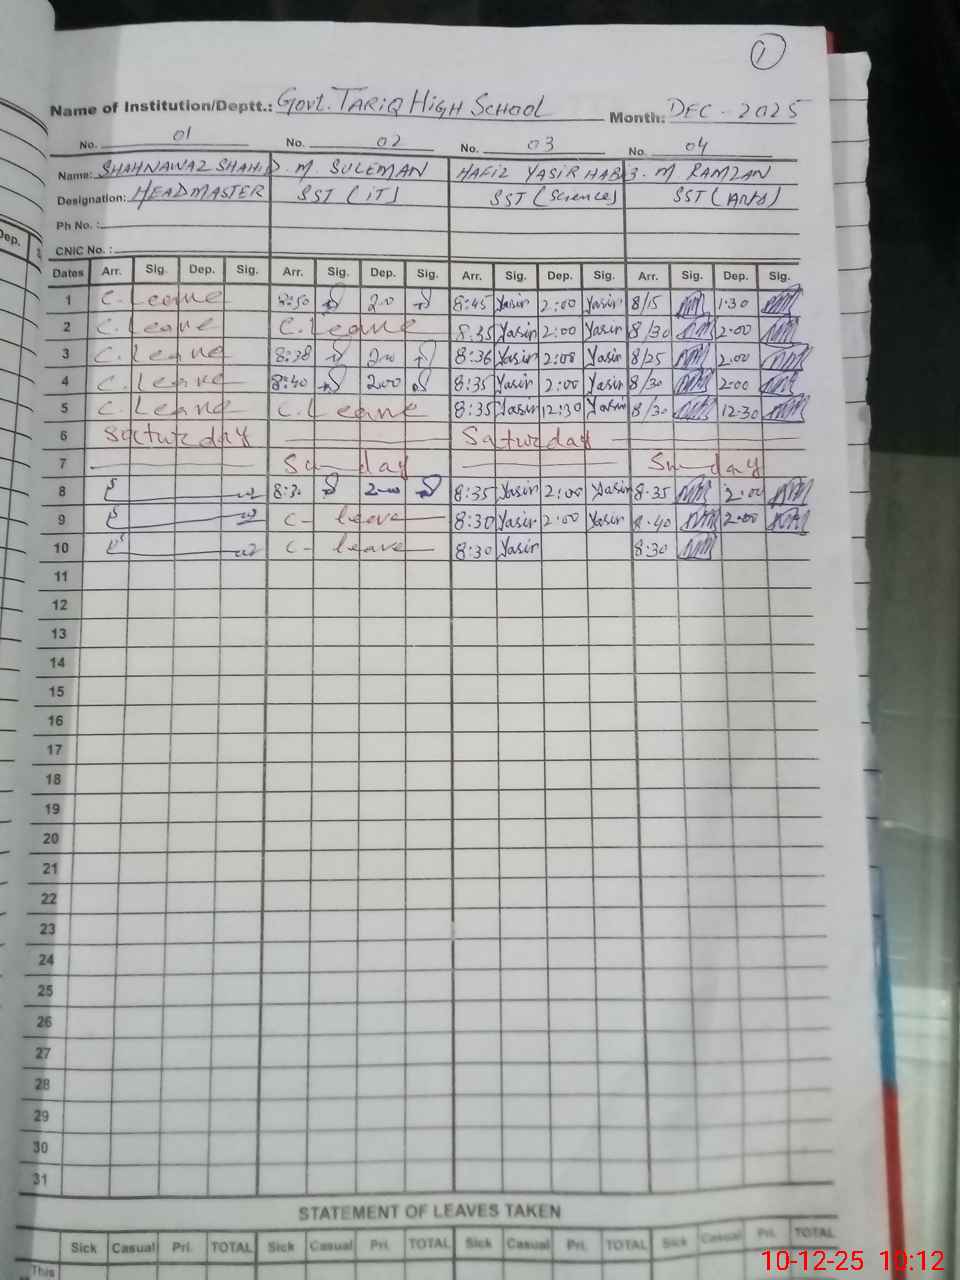 1
Name of Institution/Deptt.: Govt. TARIQ HIGH SCHOOL Month: DEC - 2025
No. 01 No. 02 No. 03 No. 04
Name: SHAHNAWAZ SHAHID M. SULEMAN HAFIZ YASIR HABIB M RAMZAN
Designation: HEADMASTER SST (IT) SST (Science) SST (Arts)
Ph No. :
CNIC No. :
Dates Arr. Sig. Dep. Sig. Arr. Sig. Dep. Sig. Arr. Sig. Dep. Sig. Arr. Sig. Dep. Sig.
1 C. Leave 8:50 200 8:45 Yasir 2:00 Yasir 8/15 1:30
2 C. Leave C. Leave 8:35 Yasir 2:00 Yasir 8/30 2:00
3 C. Leave 8:38 200 8:36 Yasir 2:00 Yasir 8/25 2:00
4 C. Leave 8:40 200 8:35 Yasir 2:00 Yasir 8/30 2:00
5 C. Leave C. Leave 8:35 Yasir 12:30 Yasir 8/30 12:30
6 Saturday Saturday
7 Sunday Sunday
8 8:3. 200 8:35 Yasir 2:00 Yasir 8:35 2:00
9 C- leave 8:30 Yasir 2:00 Yasir 8:40 2:00
10 C- leave 8:30 Yasir 8:30
11
12
13
14
15
16
17
18
19
20
21
22
23
24
25
26
27
28
29
30
31
STATEMENT OF LEAVES TAKEN
Sick Casual Pri. TOTAL Sick Casual Pri. TOTAL Sick Casual Pri. TOTAL Sick Casual Pri. TOTAL
This
10-12-25 10:12